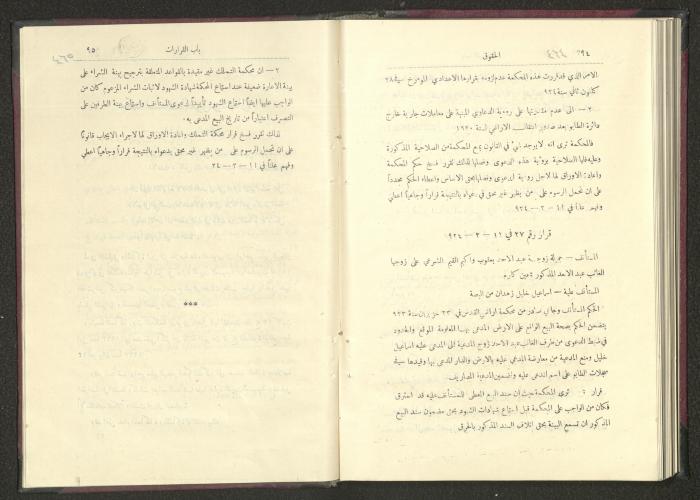 ٩٤ ٤٦٤ الحقوق
الامر الذي قدقررت هذه المحكمة عدم لزومه بقرارها الاعدادي المؤرخ في ٢٨
كانون ثاني سنة ٩٢٤
٢ — الى عدم صلاحيتها على رؤية الدعاوي المبنية على معاملات جارية خارج
دائرة الطابو بعد صدور انتقالات الاراضي لسنة ١٩٢٠
فالمحكمة ترى انه لا يوجد في القانون يمنع المحكمة من الصلاحية المذكورة
وعليه فلها الصلاحية برؤية هذه الدعوى وفصلها لذلك تقرر فسخ حكم المحكمة
واعادة الاوراق لها لاجل رؤية الدعوى وفصلها بحق الاساس واعطاء الحكم مجدداً
على ان تحمل الرسوم على من يظهر غير محق في دعواه بالنتيجة قراراً وجاهياً اعطي
وفهم علناً في ١١ — ٢ — ٩٢٤
قرار رقم ٢٧ في ١١ — ٢ — ٩٢٤
المستأنف — جميلة زوجة عبد الاحد يعقوب والقيم الشرعي على زوجها
الغائب عبد الاحد المذكور
المستأنف عليه — اسماعيل خليل زهدان من البصة
الحكم المستأنف وجاهي صادر من محكمة اراضي القدس في ٢٣ حزيران سنة ٩٢٣
يتضمن الحكم بصحة البيع الواقع على الارض المدعى بها المعلومة الموقع والحدود
في ضبط الدعوى من طرف الغائب عبد الاحد زوج المدعية الى المدعى عليه اسماعيل
خليل ومنع المدعية من معارضة المدعى عليه بالارض والدار المدعى بها وقيدها في
سجلات الطابو على اسم المدعى عليه وتضمين المدعية المصاريف
قرار : ترى المحكمة حيث ان سند البيع المعطى للمستأنف عليه قد احترق
فكان من الواجب على المحكمة قبل استماع شهادات الشهود بحق مضمون سند البيع
المذكور ان تسمع البينة بحق اتلاف السند المذكور بالحرق
باب القرارات ٩٥ ٤٦٥
٢ — ان محكمة التملك غير مقيدة بالقواعد المتعلقة بترجيح بينة الشراء على
بينة الاعارة ضعيفة عند استماع المحكمة شهادة الشهود لاثبات الشراء المزعوم كان من
الواجب عليها ايضاً استماع الشهود تأييداً لدعوى المستأنف واستماع بينة الطرفين على
التصرف اعتباراً من تاريخ البيع المدعى به
لذلك تقرر فسخ قرار محكمة التملك واعادة الاوراق لها لاجراء الايجاب قانونًا
على ان تحمل الرسوم على من يظهر غير محق بدعواه بالنتيجة قراراً وجاهياً اعطي
وفهم علناً في ١١ — ٢ — ٢٤
***